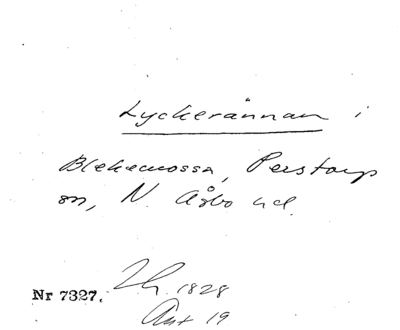 Lyckerännan i
Blekemossa, Perstorp
sn, N. Åsbo hd.
Nr 7327.
1828
Ant 19